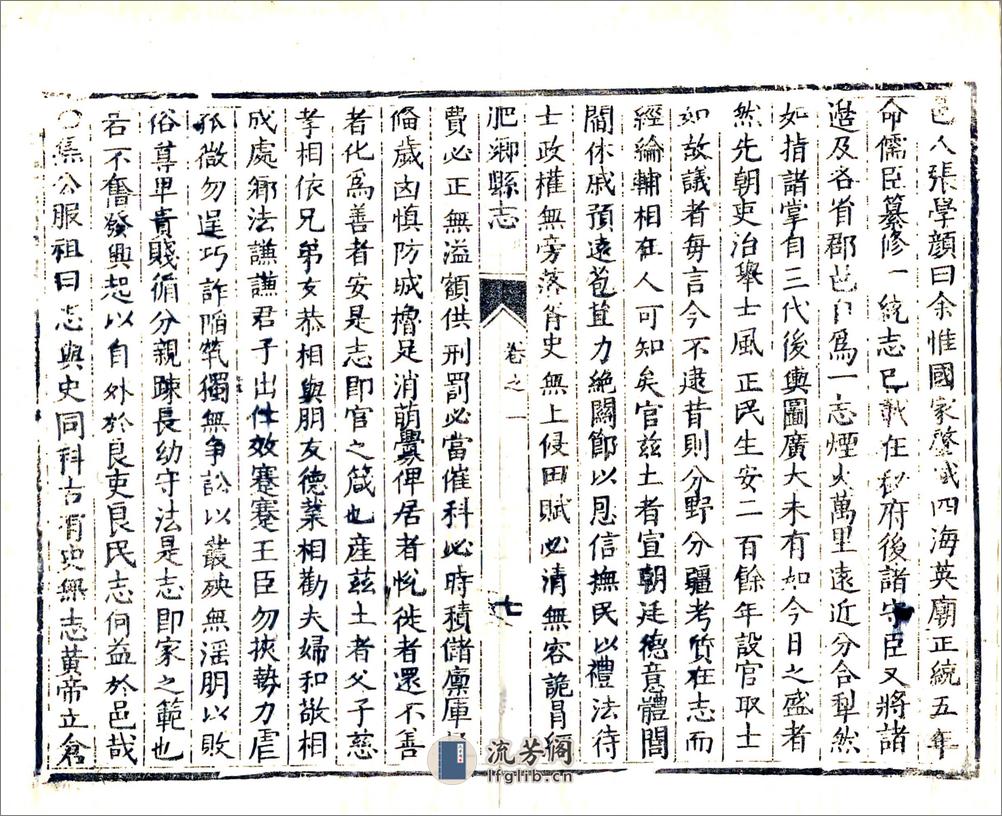 邑人張學顏曰余惟國家啓域四海英廟正統五年
命儒臣纂修一統志已載在秘府後諸守臣又將諸
邊及各省郡邑自爲一志煙火萬里遠近分合犁然
如指諸掌自三代後輿圖廣大未有如今日之盛者
然先朝吏治舉士風正民生安二百餘年設官取士
如故議者毎言今不逮昔則分野分疆考質在志而
經綸輔相在人可知矣官茲土者宣朝廷德意體閭
閻休戚預遠苞苴力絶關節以恩信撫民以禮法待
士政權無旁落胥史無上侵田賦必清無容詭冒經
肥鄉縣志
卷之一
七
費必正無溢額供刑罰必當催科必時積儲廩庫
備歲凶慎防城擼足消萌釁俾居者悅徙者還不善
者化爲善者安是志即官之箴也産茲土者父子慈
孝相依兄弟友恭相與朋友德業相勸夫婦和敬相
成處鄉法謙謙君子出仕效蹇蹇王臣勿挾勢力虐
孤微勿逞巧詐陷煢獨無争訟以叢殃無淫朋以敗
俗尊卑貴賤循分親踈長幼守法是志即家之範也
若不奮發興起以自外於良吏良民志何益於邑哉
○集公服祖曰志與史同科古有史無志黄帝立倉
流芳阁
lfglib.cn